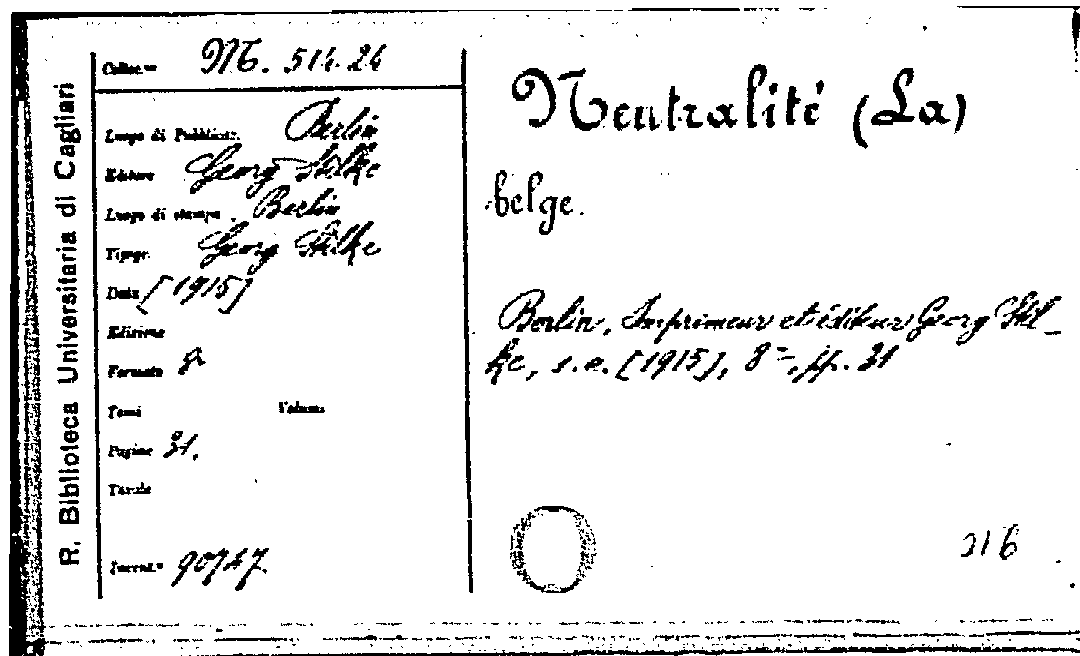 R. Biblioteca Universitaria di Cagliari
Colloc.ne M. 514.24
Luogo di Pubblicaz. Berlin
Editore Georg Stilke
Luogo di stampa Berlin
Tipogr. Georg Stilke
Data [1915]
Edizione
Formato 8º
Tomi Volume
Pagine 31.
Tavole
Neutralité (La)
belge.
Berlin, Imprimeur et éditeur Georg Stil-
ke, s.a. [1915], 8º, pp. 31